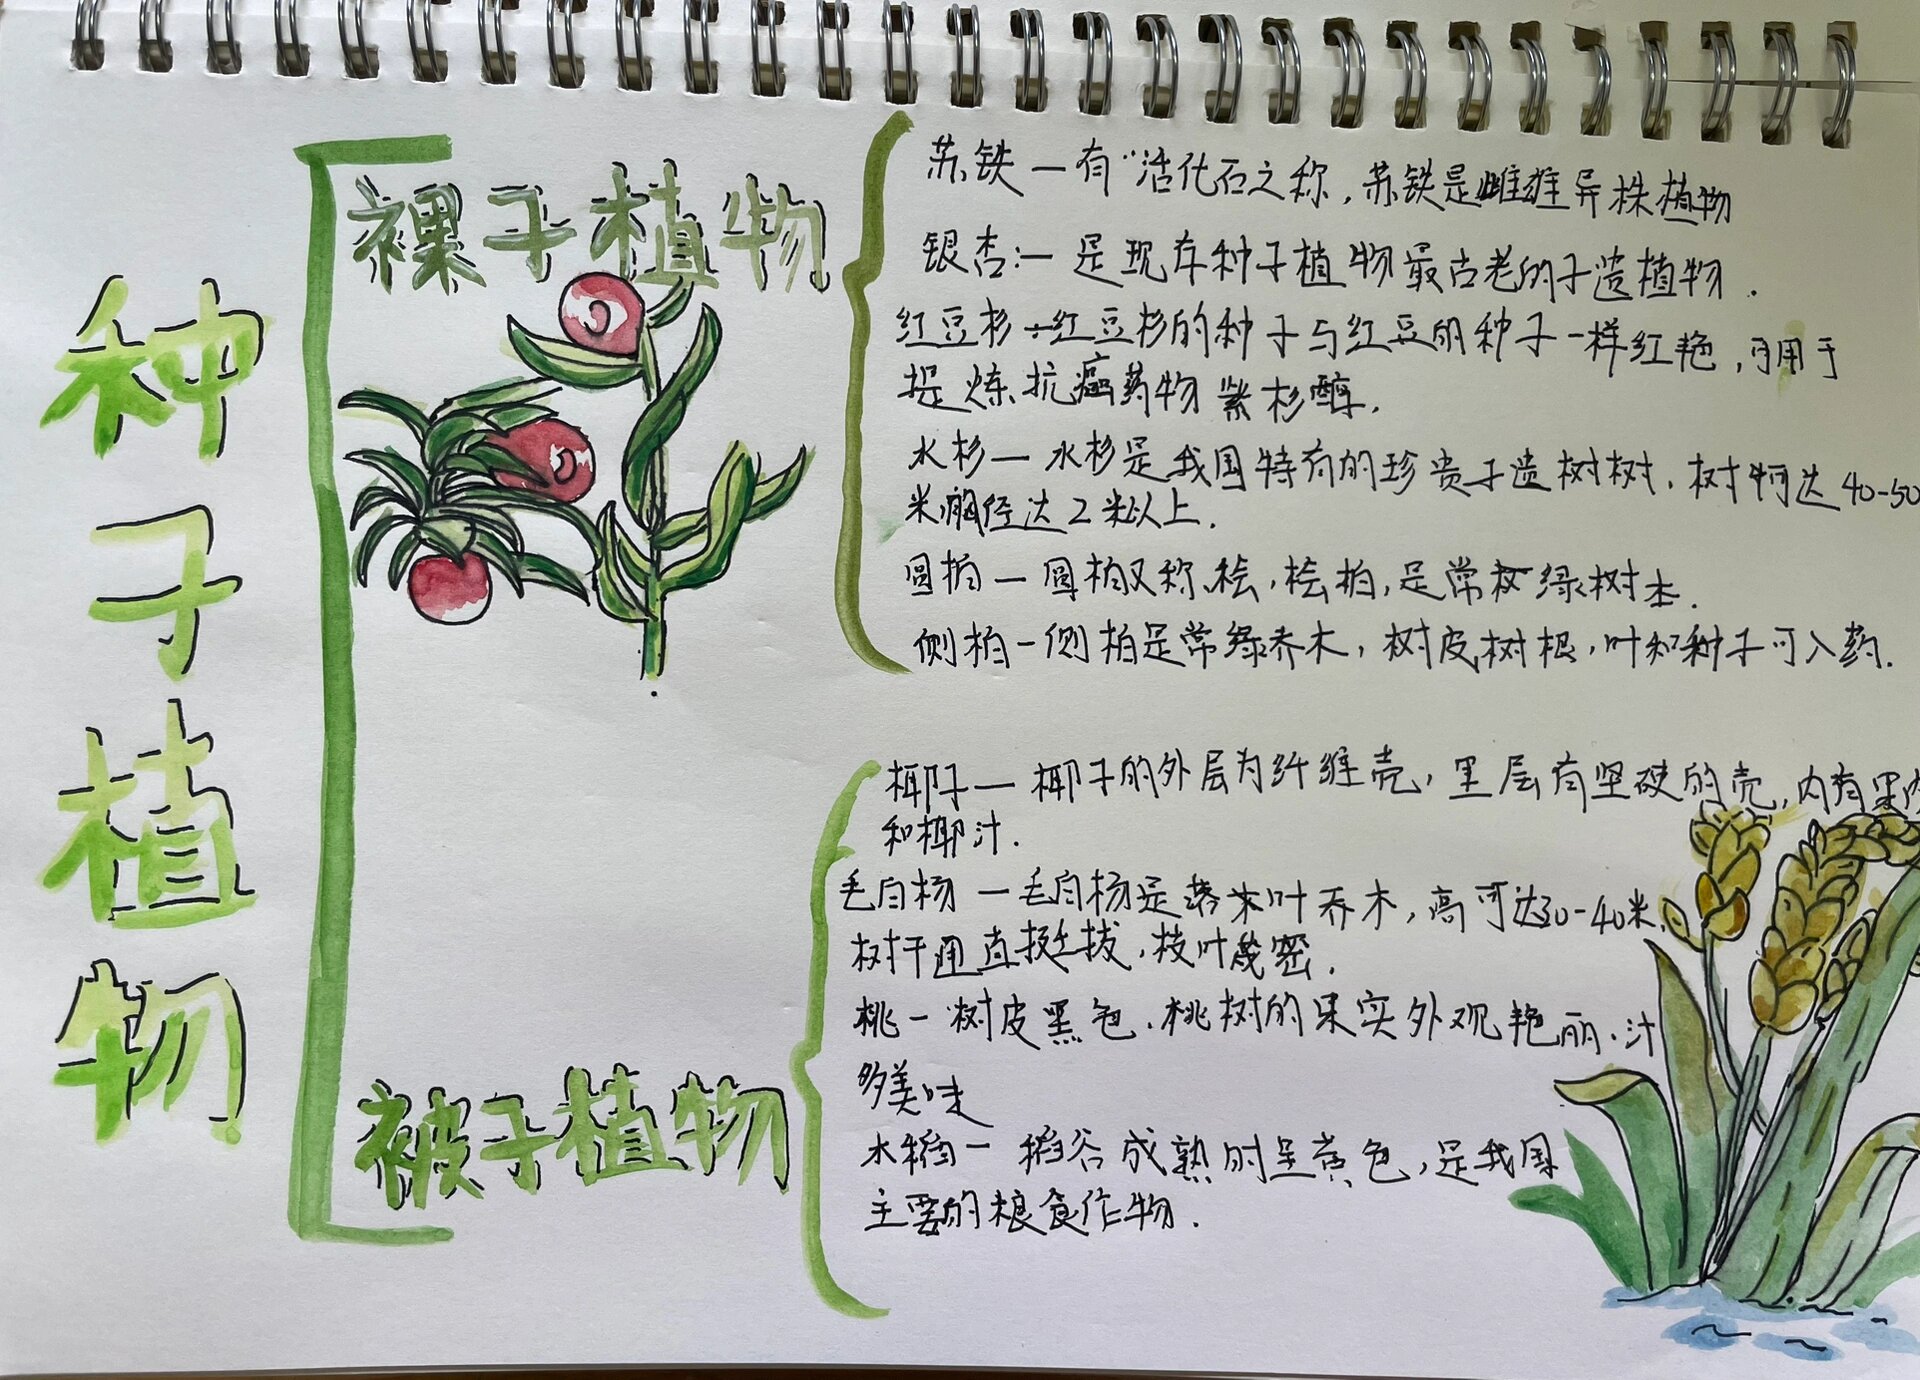 种子植物
裸子植物
苏铁一有“活化石之称，苏铁是雌雄异株植物
银杏：一是现存种子植物最古老的孑遗植物．
红豆杉：红豆杉的种子与红豆的种子一样红艳，可用于
提炼抗癌药物紫杉醇．
水杉一水杉是我国特有的珍贵孑遗树树．树 可达40-50
米胸径达2米以上．
圆柏一圆柏又称、桧，桧柏，是常 绿树木．
侧柏一侧柏是常绿乔木，树皮树根，叶和种子可入药．
椰子一椰子的外层为纤维壳，里层有坚硬的壳，内有果肉
和椰汁．
毛白杨一毛白杨是落 叶乔木，高可达30-40米，
树干通直挺拔，枝叶茂密．
桃一树皮黑色．桃树的果实外观艳丽．汁
多美味
水稻一稻谷成熟时呈黄色，是我国
主要的粮食作物．
被子植物